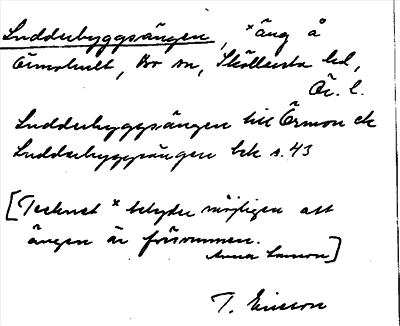 Sudderbyggsängen, ×äng å
Örmohult, Bo sn, Sköllersta hd,
Ör. l.
Sudderbyggsängen till Örmon ek
Sudderbyggsängen bek s. 43
[Tecknet × betyder möjligen att
ängen är försvunnen.
Anna Larsson]
T. Ericsson